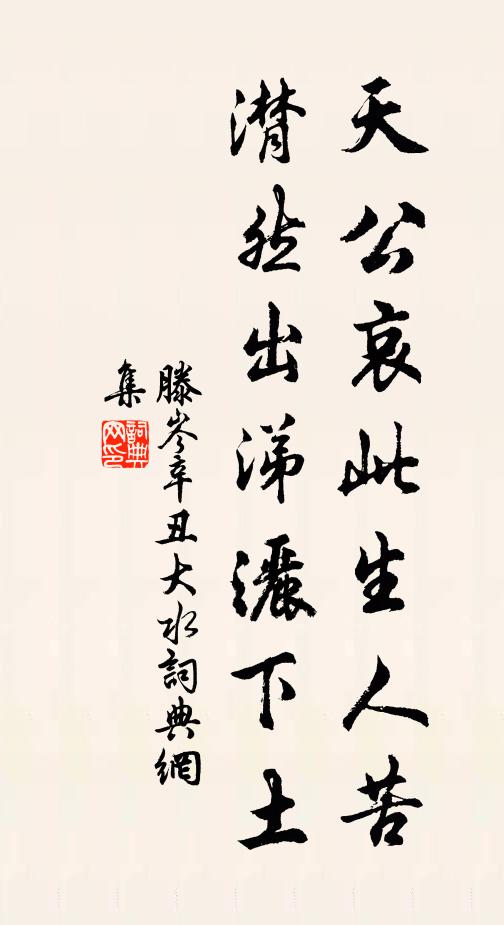 天公哀此生人苦
潸然出涕灑下土
滕岑辛丑大水詞典網
集
詞典
网印